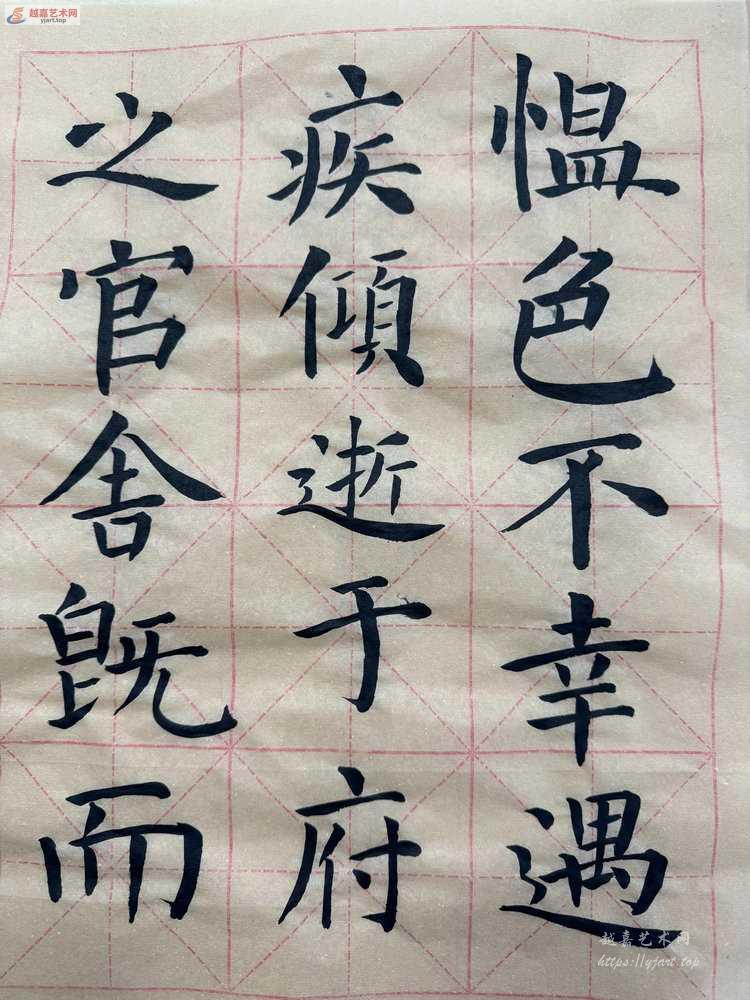 愠色不幸遇
疾傾逝于府
之官舍既而
越嘉艺术网
yjart.top
越嘉艺术网
https://yjart.top